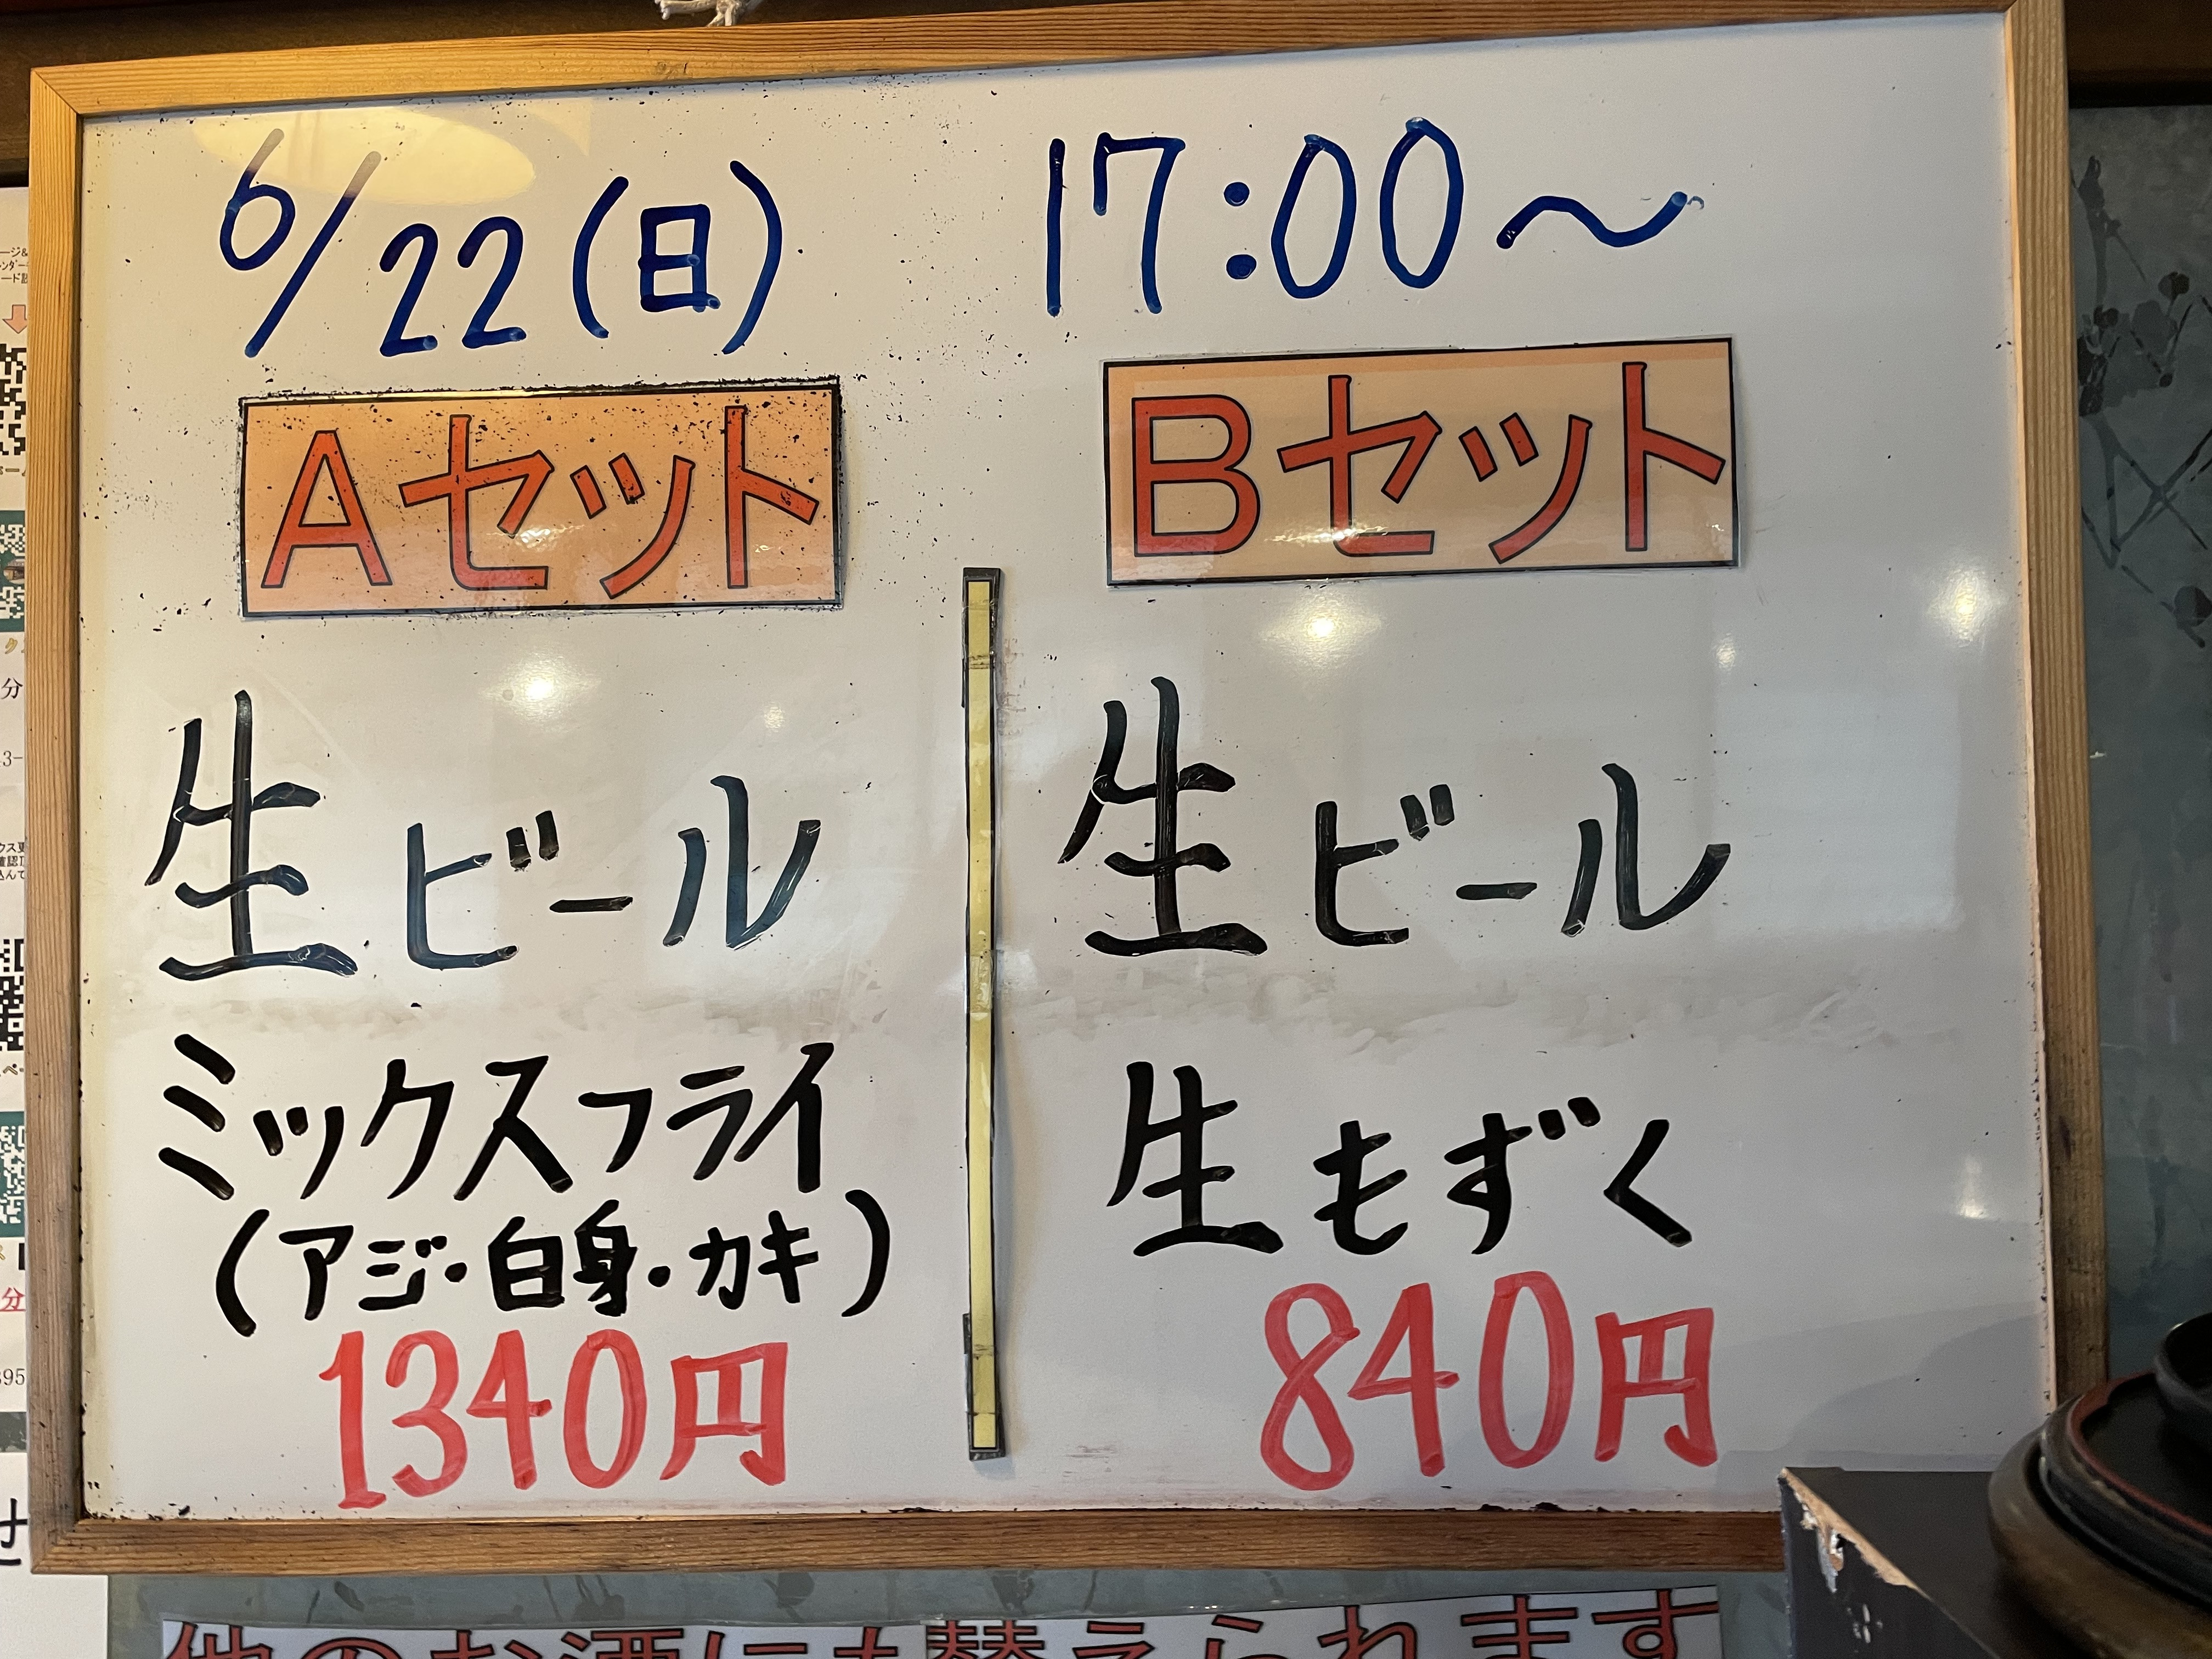 6/22(日) 17:00～
Aセット
生ビール
ミックスフライ
(アジ・白身・カキ)
1340円
Bセット
生ビール
生もずく
840円
他のお酒にも替えられます